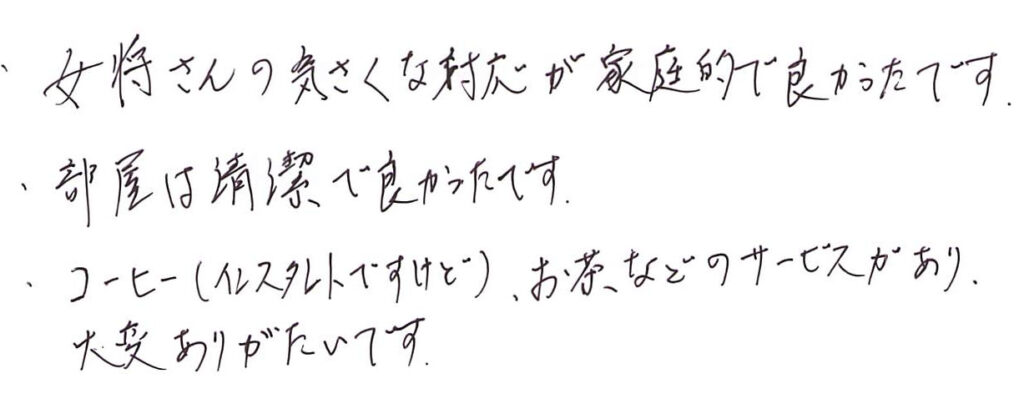 ・女将さんの気さくな対応が家庭的で良かったです.
・部屋は清潔で良かったです.
・コーヒー(インスタントですけど)、お茶などのサービスがあり、
大変ありがたいです.